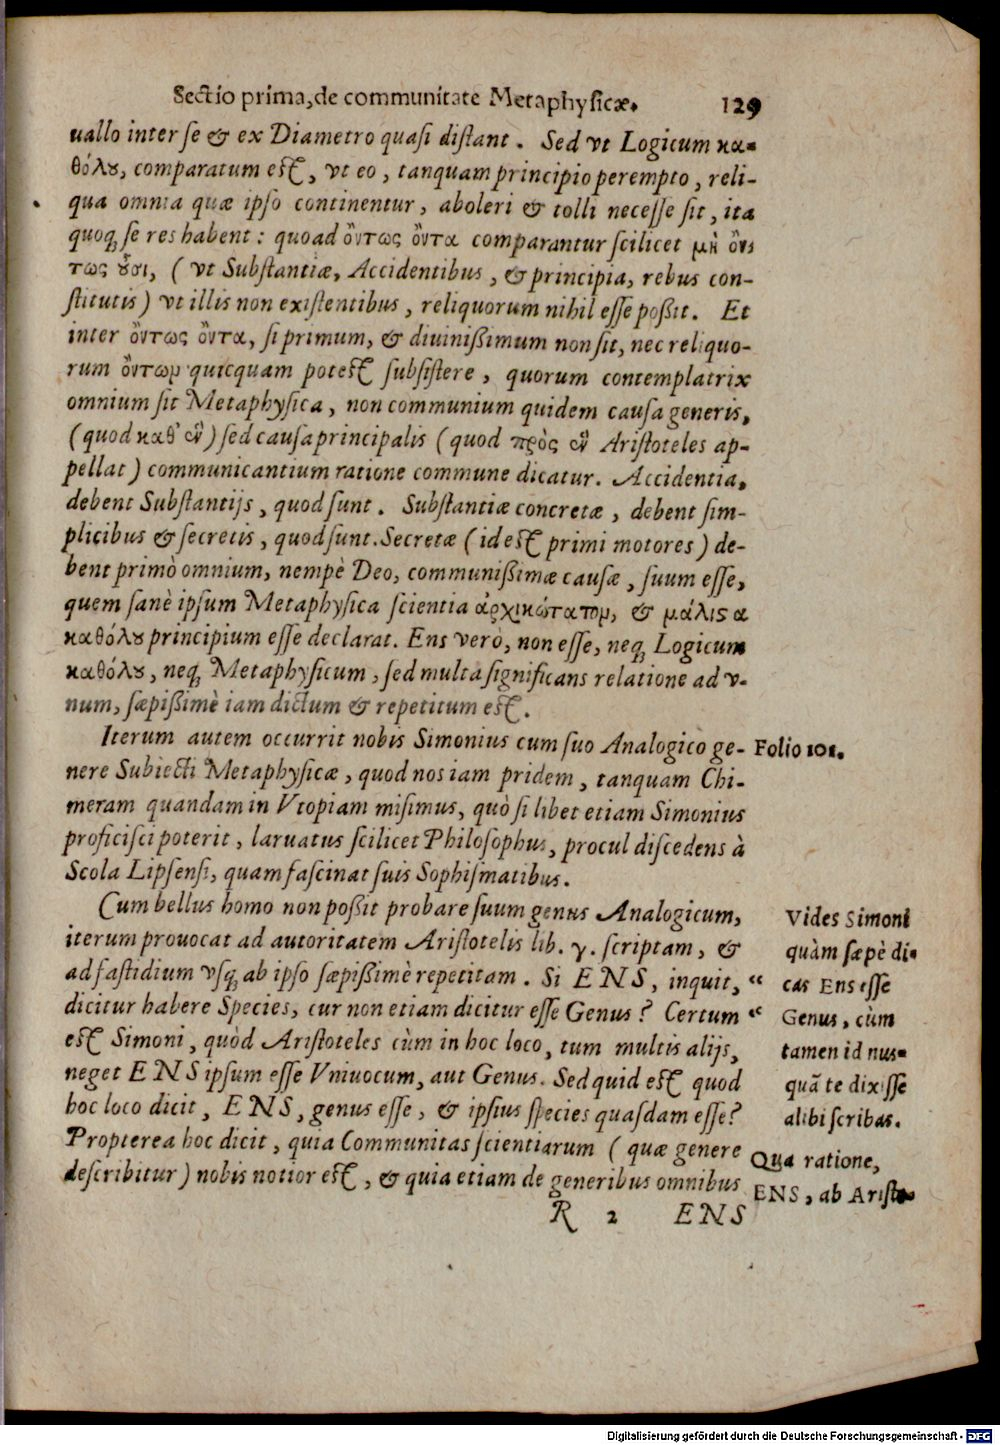 Sectio prima, de communitate Metaphysicæ. 129
uallo inter se & ex Diametro quasi distant. Sed vt Logicum κα-
θόλȣ, comparatum est, vt eo, tanquam principio perempto, reli-
qua omnia quæ ipso continentur, aboleri & tolli necesse sit, ita
quoq; se res habent: quoad ὄντως ὄντα comparantur scilicet μὴ ὄν
τως ȣ̓σι, (vt Substantiæ, Accidentibus, & principia, rebus con-
stitutis) vt illis non existentibus, reliquorum nihil esse poßit. Et
inter ὄντως ὄντα, si primum, & diuinißimum non sit, nec reliquo-
rum ὄντωμ quicquam potest subsistere, quorum contemplatrix
omnium sit Metaphysica, non communium quidem causa generis,
(quod καθ' ἓν) sed causa principalis (quod πρὸς ἓν Aristoteles ap-
pellat) communicantium ratione commune dicatur. Accidentia,
debent Substantijs, quod sunt. Substantiæ concretæ, debent sim-
plicibus & secretis, quod sunt. Secretæ (id est primi motores) de-
bent primò omnium, nempè Deo, communißimæ causæ, suum esse,
quem sanè ipsum Metaphysica scientia ἀρχικώτατομ, & μάλιςα
καθόλȣ principium esse declarat. Ens verò, non esse, neq; Logicum
καθόλȣ, neq; Metaphysicum, sed multa significans relatione ad v-
num, sæpißimè iam dictum & repetitum est.
Iterum autem occurrit nobis Simonius cum suo Analogico ge- Folio 101.
nere Subiecti Metaphysicæ, quod nos iam pridem, tanquam Chi-
meram quandam in Vtopiam misimus, quò si libet etiam Simonius
proficisci poterit, laruatus scilicet Philosophus, procul discedens à
Scola Lipsensi, quam fascinat suis Sophismatibus.
Cum bellus homo non poßit probare suum genus Analogicum,
iterum prouocat ad autoritatem Aristotelis lib. γ. scriptam, &
ad fastidium vsq; ab ipso sæpißimè repetitam. Si ENS, inquit, “
dicitur habere Species, cur non etiam dicitur esse Genus? Certum “
est Simoni, quòd Aristoteles cùm in hoc loco, tum multis alijs,
neget ENS ipsum esse Vniuocum, aut Genus. Sed quid est quod
hoc loco dicit, ENS, genus esse, & ipsius species quasdam esse?
Propterea hoc dicit, quia Communitas scientiarum (quæ genere
describitur) nobis notior est, & quia etiam de generibus omnibus
Vides Simoni
quàm sæpè di-
cas Ens esse
Genus, cùm
tamen id nus-
quã te dixisse
alibi scribas.
Qua ratione,
ENS, ab Aristo-
R 2 ENS
Digitalisierung gefördert durch die Deutsche Forschungsgemeinschaft - DFG